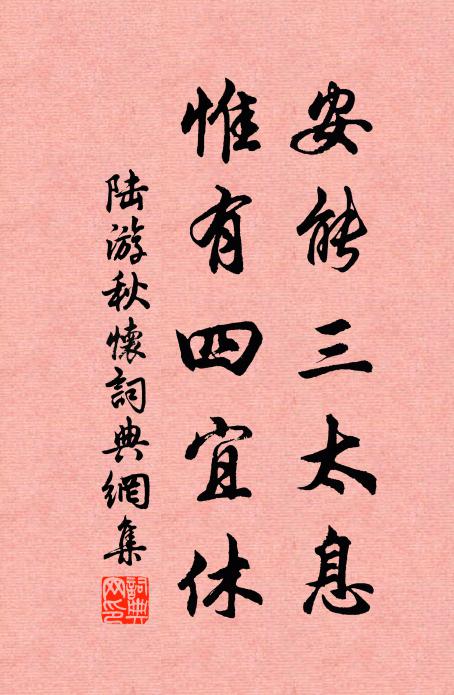 安能三太息
惟有四宜休
陆游秋懷詞典網集
詞典网印